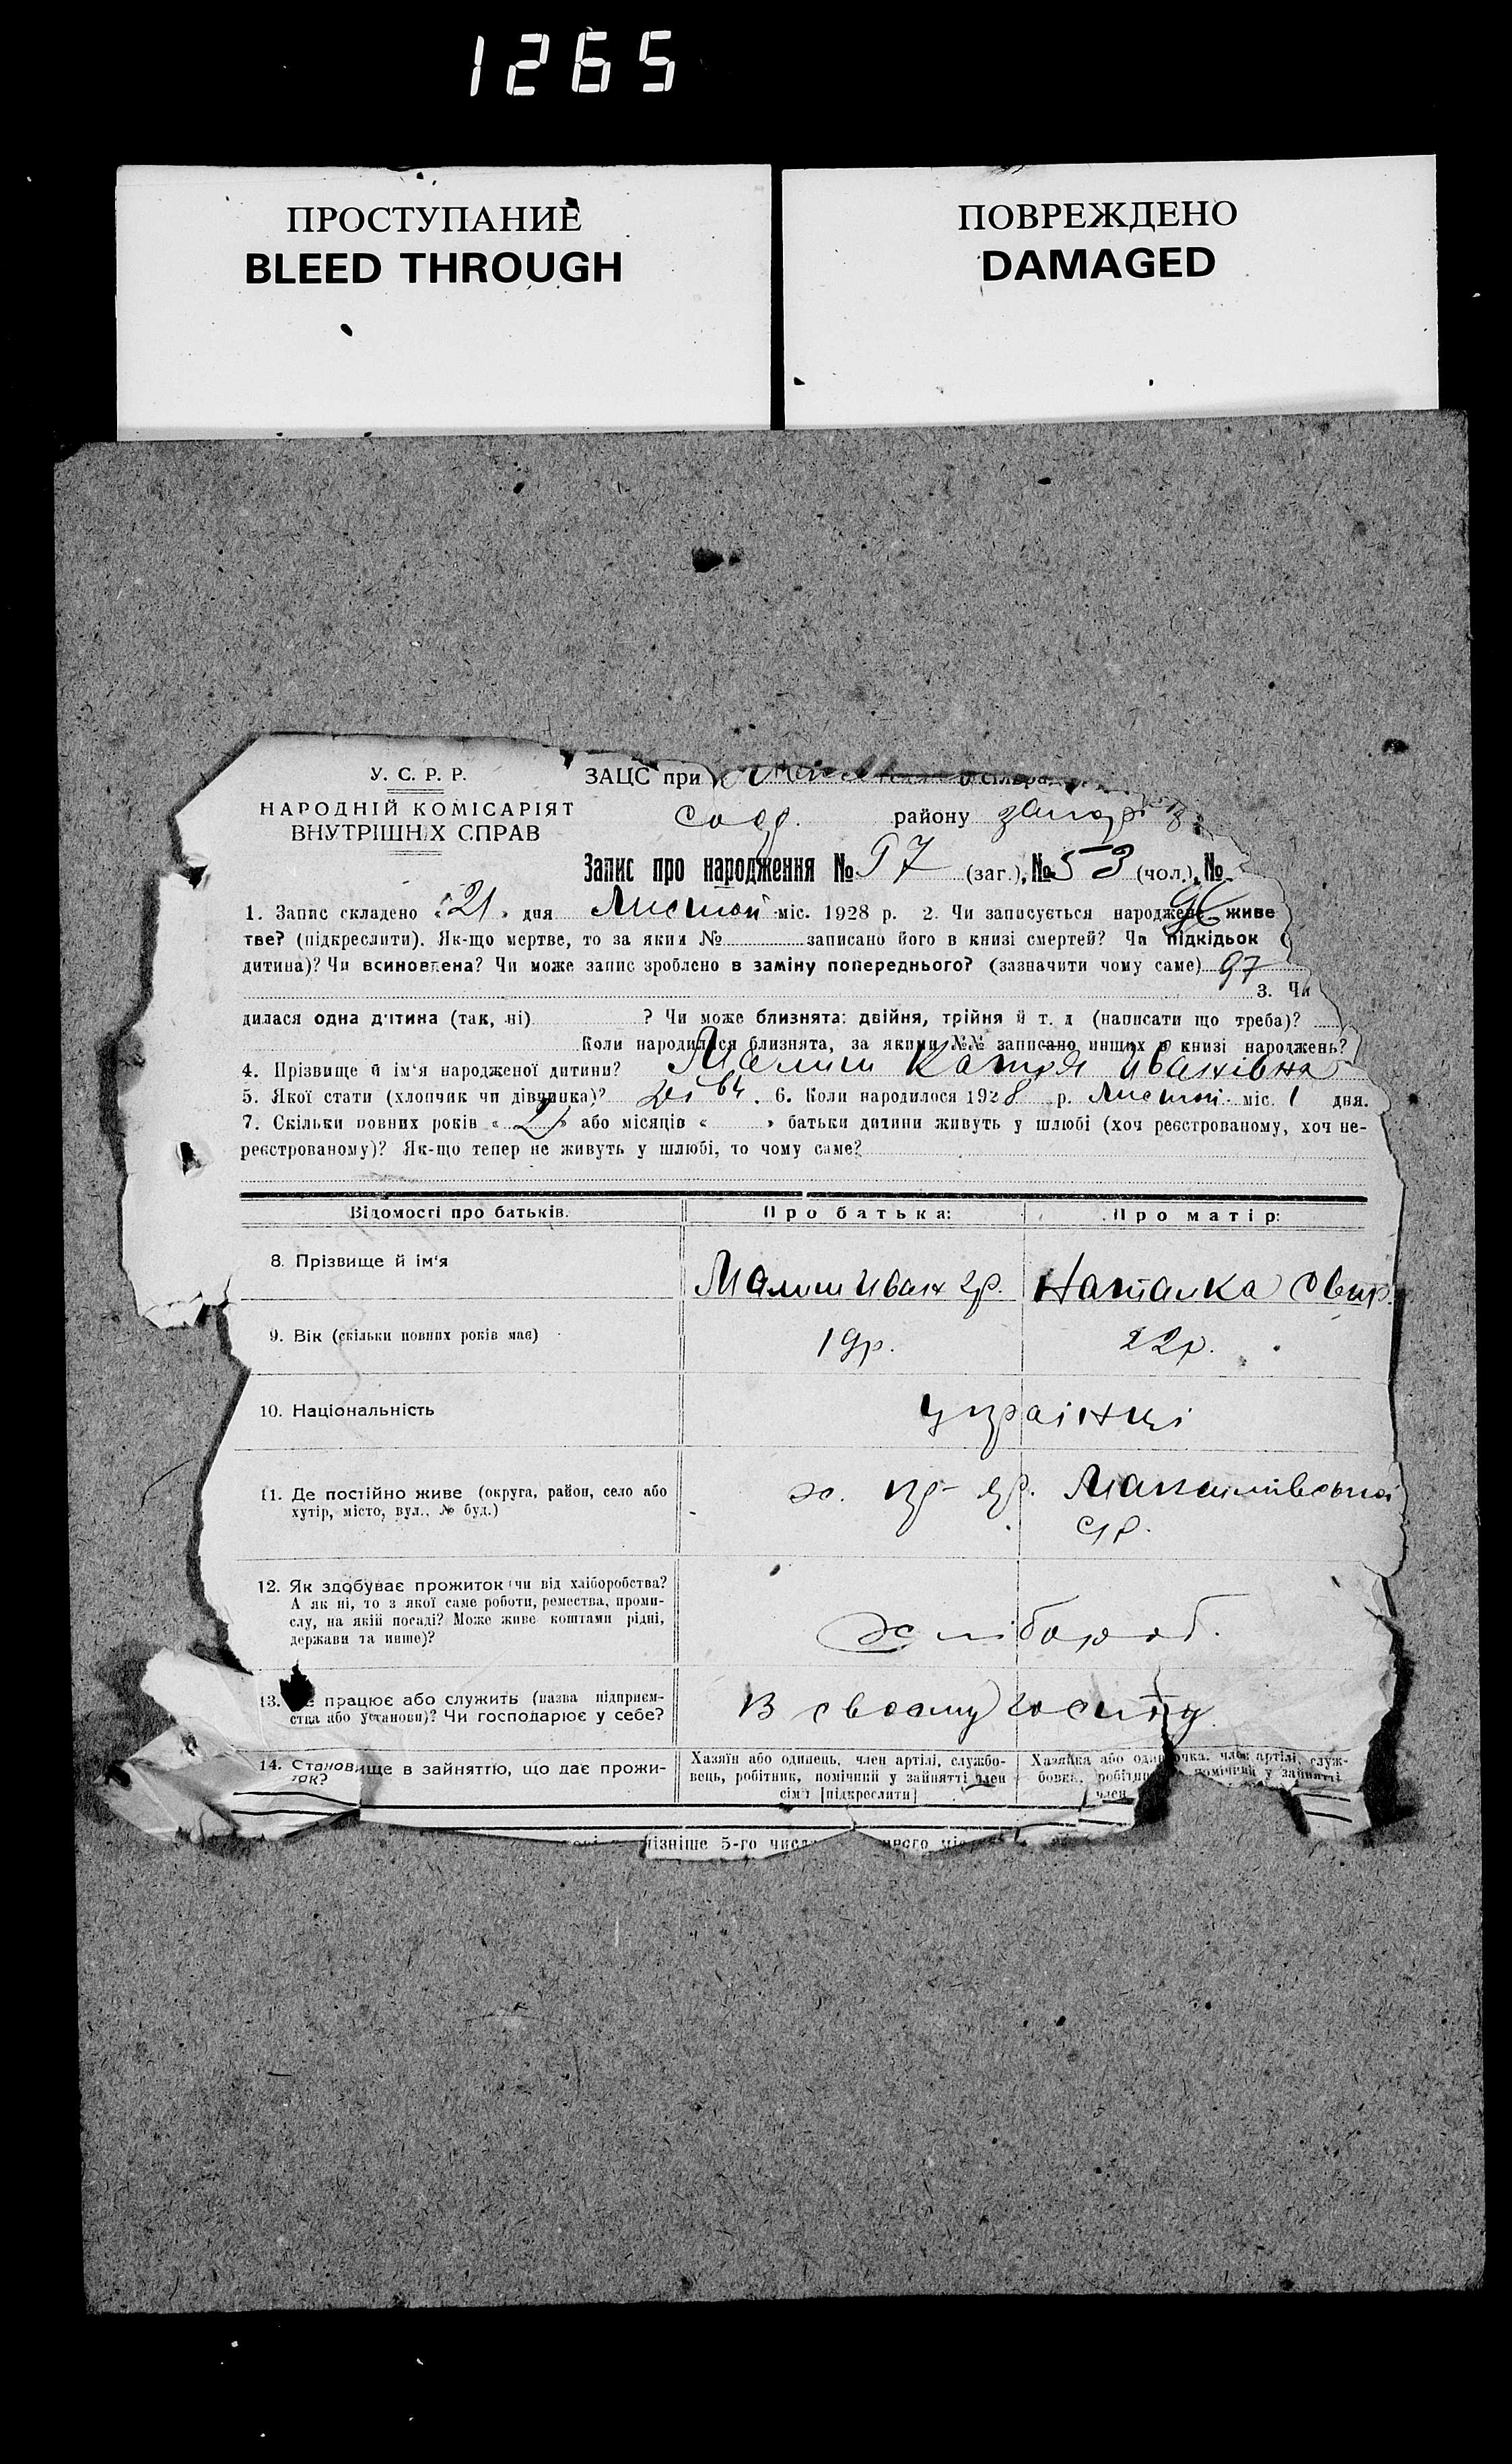 1265
ПРОСТУПАНИЕ
BLEED THROUGH
ПОВРЕЖДЕНО
DAMAGED
У. С. Р. Р.
НАРОДНІЙ КОМІСАРІЯТ
ВНУТРІШНІХ СПРАВ
ЗАЦС при
району
Запис про народження № 97 (заг.), № 53 (чол.), №
1. Запис складено «21» дня Листоп міс. 1928 р. 2. Чи записується народжене живе
тве? (підкреслити). Як-що мертве, то за яким № записано його в книзі смертей? Чи підкідьок
дитина)? Чи всиновлена? Чи може запис зроблено в заміну попереднього? (зазначити чому саме) 97
3. Чи
дилася одна дитина (так, ні) ? Чи може близнята: двійня, трійня й т. д (написати що треба)?
Коли народилися близнята, за якими №№ записано инших в книзі народжень?
4. Прізвище й ім'я народженої дитини? Малиш Катря Иванівна
5. Якої стати (хлопчик чи дівчинка)? 6. Коли народилося 1928 р. Листоп міс. 1 дня.
7. Скільки повних років « 2 » або місяців « » батьки дитини живуть у шлюбі (хоч реєстрованому, хоч не-
реєстрованому)? Як-що тепер не живуть у шлюбі, то чому саме?
Відомості про батьків. Про батька: Про матір:
8. Прізвище й ім'я Малиш Иван Гр. Наталка Свир.
9. Вік (скільки повних років має) 19р. 22р.
10. Національність українці
11. Де постійно живе (округа, район, село або
хутір, місто, вул., № буд.)
х. Яр. ср.
12. Як здобуває прожиток (чи від хліборобства?
А як ні, то з якої саме роботи, ремества, проми-
слу, на якій посаді? Може живе коштами рідні,
держави та инше)?
хлібороб.
13. працює або служить (назва підприєм-
ства або установи)? Чи господарює у себе?
В своему
14. Становище в зайняттю, що дає прожи-
ток?
Хазяїн або одинець, член артілі, службо-
вець, робітник, помічний у зайнятті член
сім'ї [підкреслити]
Хазяйка або одиночка, член артілі, служ-
бовка, помічний у зайнятті
член
пізніше 5-го